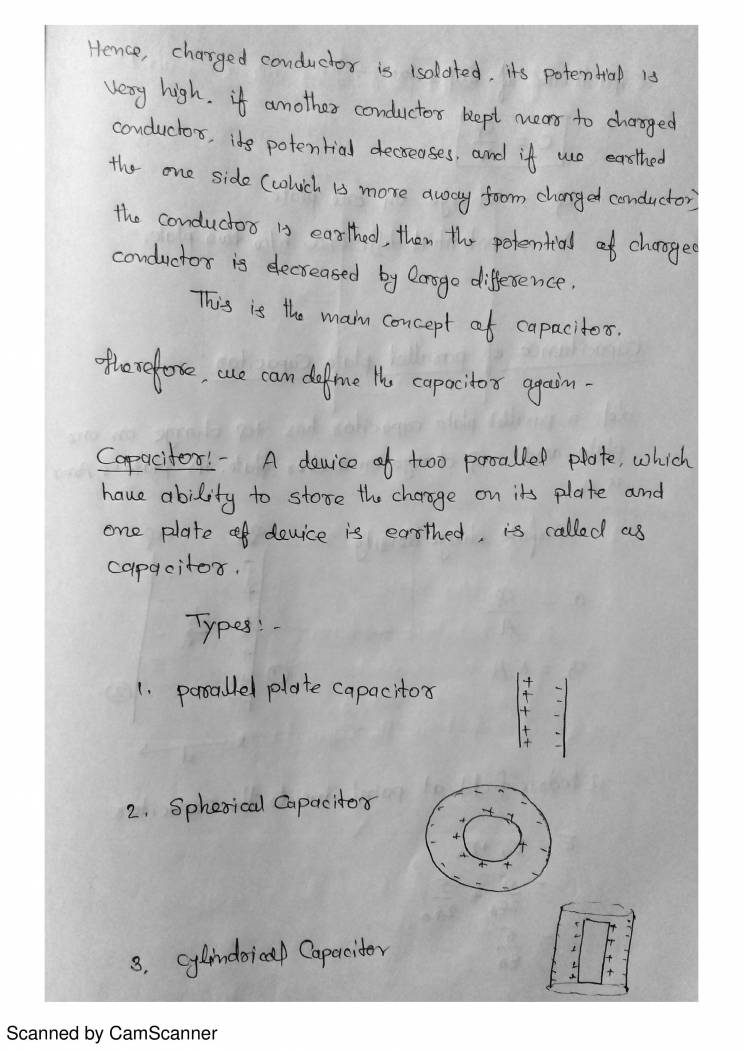 Hence, charged conductor is isolated, its potential is
very high. if another conductor kept near to charged
conductor, its potential decreases, and if we earthed
the one side (which is more away from charged conductor)
the conductor is earthed, then the potential of charged
conductor is decreased by large difference.
This is the main concept of capacitor.
therefore, we can define the capacitor again -
Capacitor:- A device of two parallel plate, which
have ability to store the charge on its plate and
one plate of device is earthed, is called as
capacitor.
Types:-
1. parallel plate capacitor
2. Spherical Capacitor
3. cylindrical Capacitor
Scanned by CamScanner